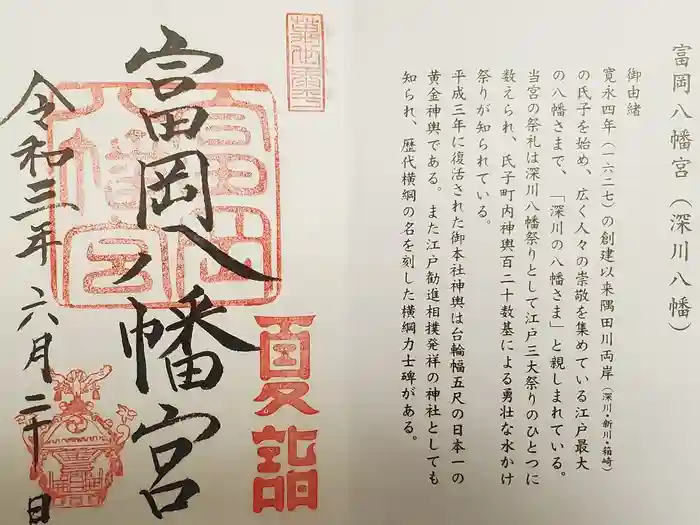 富岡八幡宮（深川八幡）
御由緒
寛永四年（一六二七）の創建以来隅田川両岸（深川・新川・箱崎）
の氏子を始め、広く人々の崇敬を集めている江戸最大
の八幡さまで、「深川の八幡さま」と親しまれている。
当宮の祭礼は深川八幡祭りとして江戸三大祭りのひとつに
数えられ、氏子町内神輿百二十数基による勇壮な水かけ
祭りが知られている。
平成三年に復活された御本社神輿は台輪幅五尺の日本一の
黄金神輿である。また江戸勧進相撲発祥の神社としても
知られ、歴代横綱の名を刻した横綱力士碑がある。
富岡八幡宮
夏詣
富岡八幡宮
令和三年六月二十日